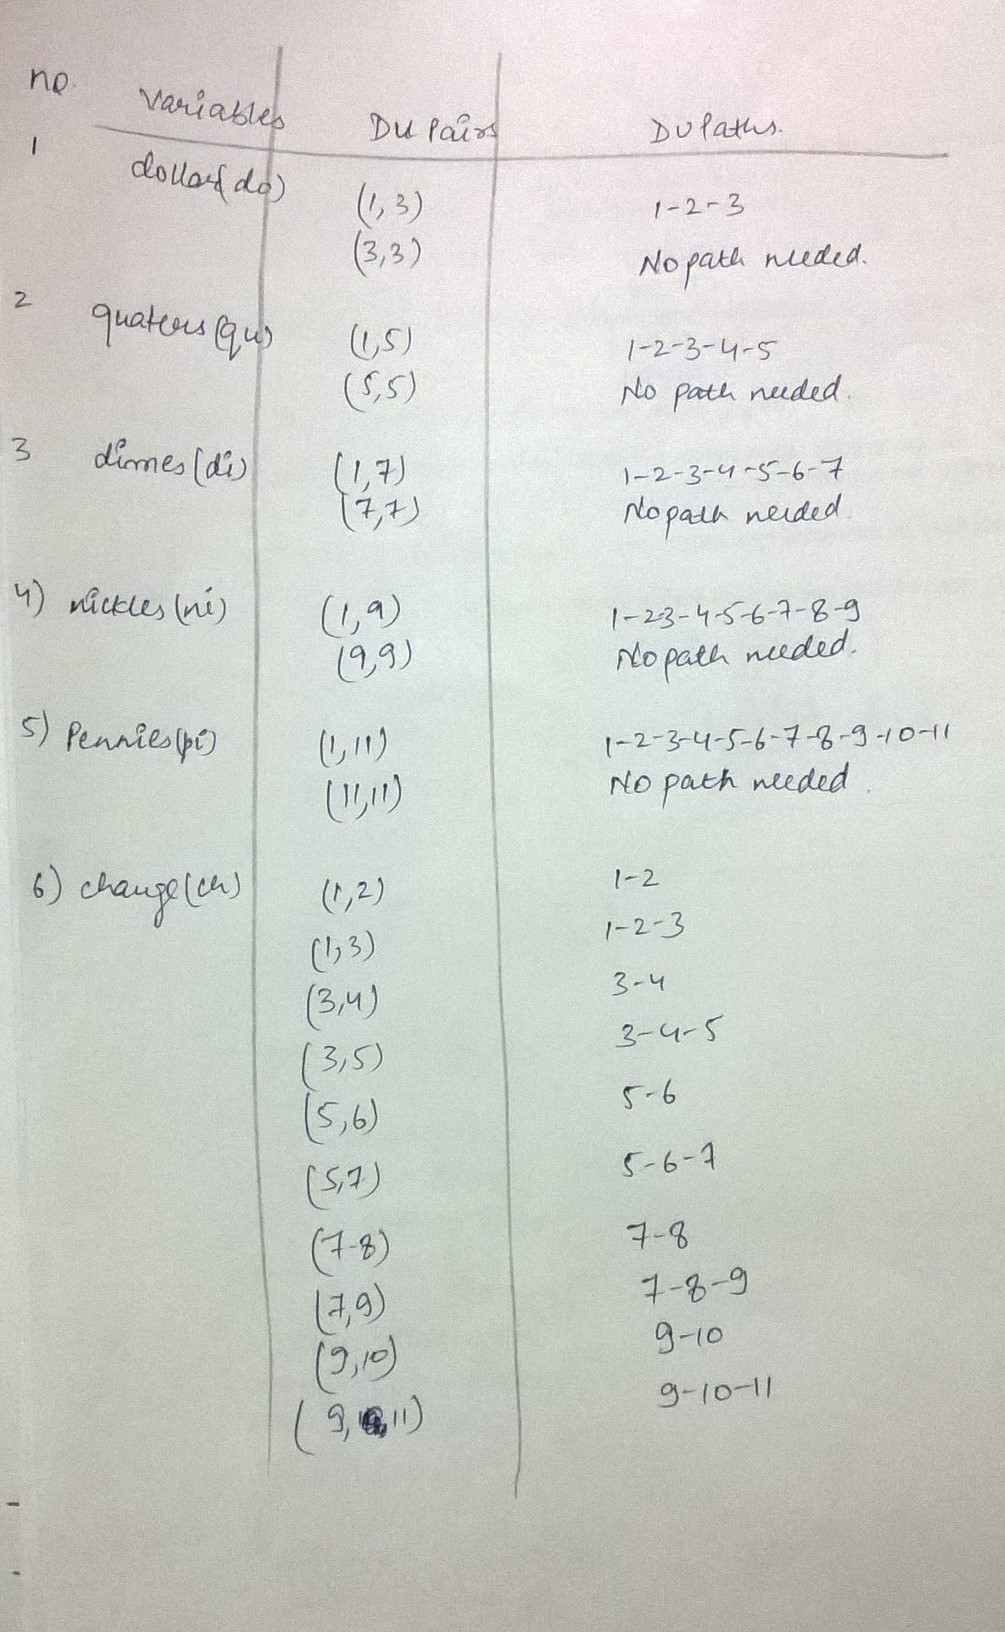 no. Variables DU Pairs DU Paths.
1 dollar(do) (1,3) 1-2-3
(3,3) No path needed.
2 quaters(qu) (1,5) 1-2-3-4-5
(5,5) No path needed.
3 dimes(di) (1,7) 1-2-3-4-5-6-7
(7,7) No path needed.
4) nickles(ni) (1,9) 1-2-3-4-5-6-7-8-9
(9,9) No path needed.
5) Pennies(pi) (1,11) 1-2-3-4-5-6-7-8-9-10-11
(11,11) No path needed.
6) change(ch) (1,2) 1-2
(1,3) 1-2-3
(3,4) 3-4
(3,5) 3-4-5
(5,6) 5-6
(5,7) 5-6-7
(7-8) 7-8
(7,9) 7-8-9
(9,10) 9-10
(9,11) 9-10-11